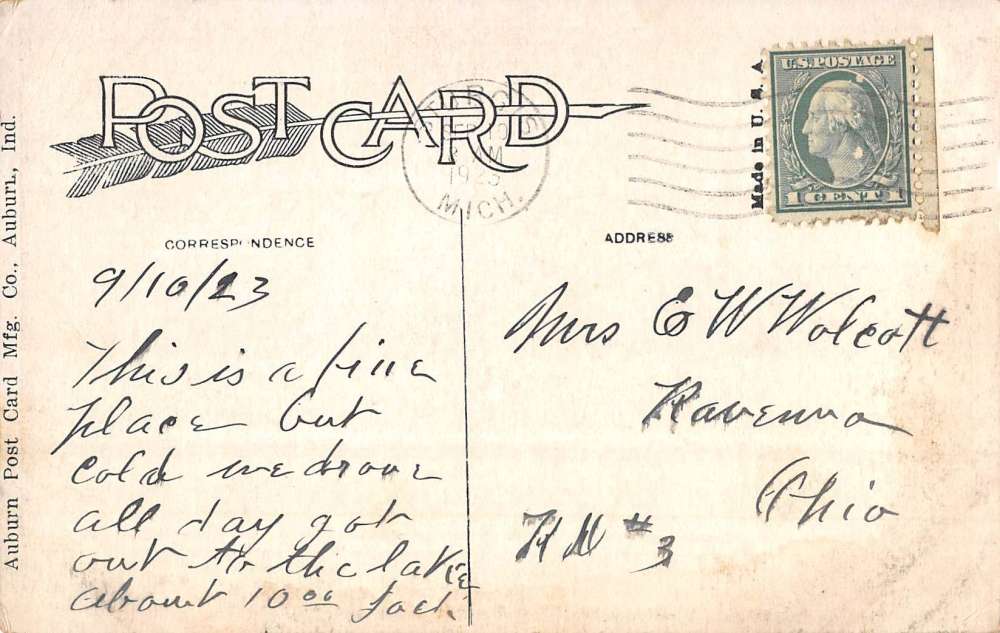 POST CARD
MICH.
1923
U.S. POSTAGE
1 CENT 1
Made in U. S. A
CORRESPONDENCE
ADDRESS
Auburn Post Card Mfg. Co., Auburn, Ind.
9/10/23
This is a fine
place but
cold we drove
all day got
out to the lake
about 10 00
Mrs E W Wolcott
Ravenna
Ohio
# 3